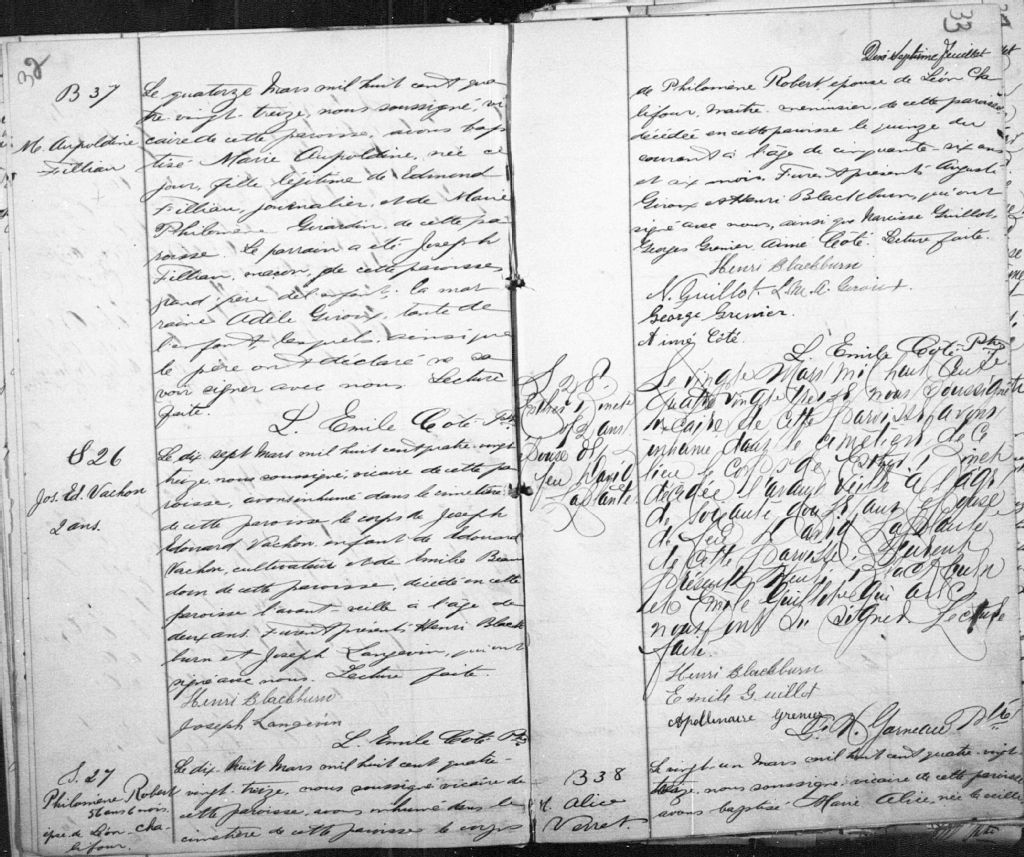 32
B 37
M. Aupoldine
Fillian
Le quatorze Mars mil huit cent qua
tre vingt treize, nous soussigné, vi
caire de cette paroisse, avons bap
tisé Marie Aupoldine, née ce
jour, fille légitime de Edmond
Fillian, journalier, et de Marie
Philomène Girardin, de cette pa
roisse. Le parrain a été Joseph
Fillian, maçon, de cette paroisse,
grand-père de l'enfant, la mar
raine Adèle Giroux, tante de
l'enfant lesquels, ainsi que
le père ont déclaré ne sa
voir signer avec nous. Lecture
faite.
L. Emile Coté Ptre
S 26
Jos. Ed. Vachon
2 ans.
Le dix sept Mars mil huit cent quatre vingt
treize, nous soussigné, vicaire de cette pa
roisse, avons inhumé dans le cimetière
de cette paroisse, le corps de Joseph
Edouard Vachon, enfant de Edouard
Vachon, cultivateur et de Emilie Beau
doin de cette paroisse, décédé en cette
paroisse l'avant veille à l'âge de
deux ans. Furent présents Henri Black
burn et Joseph Langevin, qui ont
signé avec nous. Lecture faite.
Henri Blackburn
Joseph Langevin
L. Emile Coté Ptre
S. 27
Philomène Robert
56 ans 6 mois
épse de Léon Cha-
lifour.
Le dix-huit Mars mil huit cent quatre-
vingt-treize, nous soussigné vicaire de
cette paroisse, avons inhumé dans le
cimetière de cette paroisse le corps
33
Dix Septième feuillet
de Philomène Robert, épouse de Léon Cha
lifour, maître menuisier, de cette paroisse
décédée en cette paroisse le quinze du
courant à l'âge de cinquante-six ans
et six mois. Furent présents Auguste
Giroux et Henri Blackburn, qui ont
signé avec nous, ainsi que Narcisse Guillot,
Georges Grenier Aimé Coté. Lecture faite.
Henri Blackburn
N. Guillot. L. M. A. Giroux.
George Grenier.
Aimé Côté.
L. Emile Coté Ptre
S 28.
Esther
72 ans
Epouse de
feu David
Laplante
Le vingt Mars mil huit cent
quatre vingt treize nous soussigné
vicaire de cette paroisse avons
inhumé dans le cimetière de ce
lieu le corps de Esther
décédée l'avant veille à l'âge
de soixante douze ans épouse
de feu David Laplante
de cette paroisse. Furent
présents Henri Blackburn
et Emile Guillot qui avec
nous ont signé. Lecture
faite.
Henri Blackburn
Emile Guillot
Apollinaire Grenier
H. Garneau Ptre
B 38
M. Alice
Verret.
Le vingt un mars mil huit cent quatre-vingt
treize, nous soussigné vicaire de cette paroisse
avons baptisé Marie Alice, née la veille